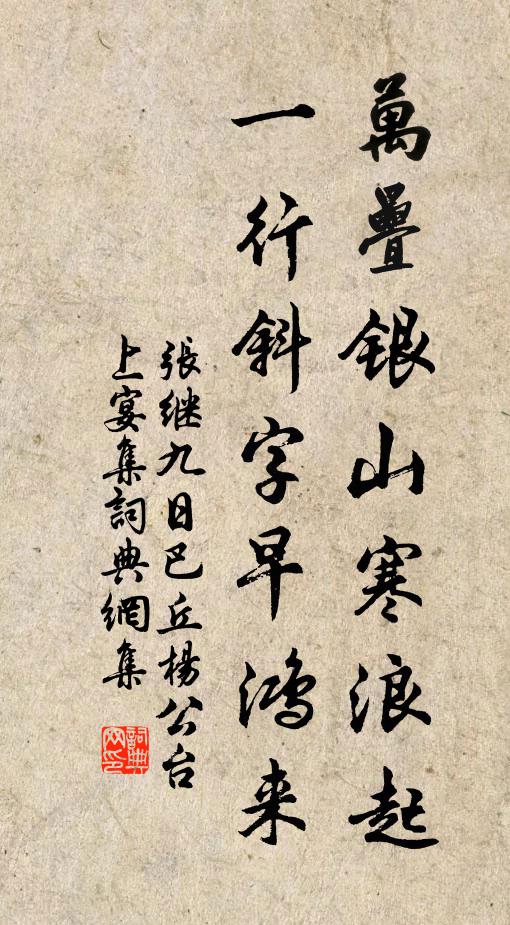 萬疊銀山寒浪起
一行斜字早鴻来
張继九日巴丘楊公台
上宴集詞典網集
詞典
网印